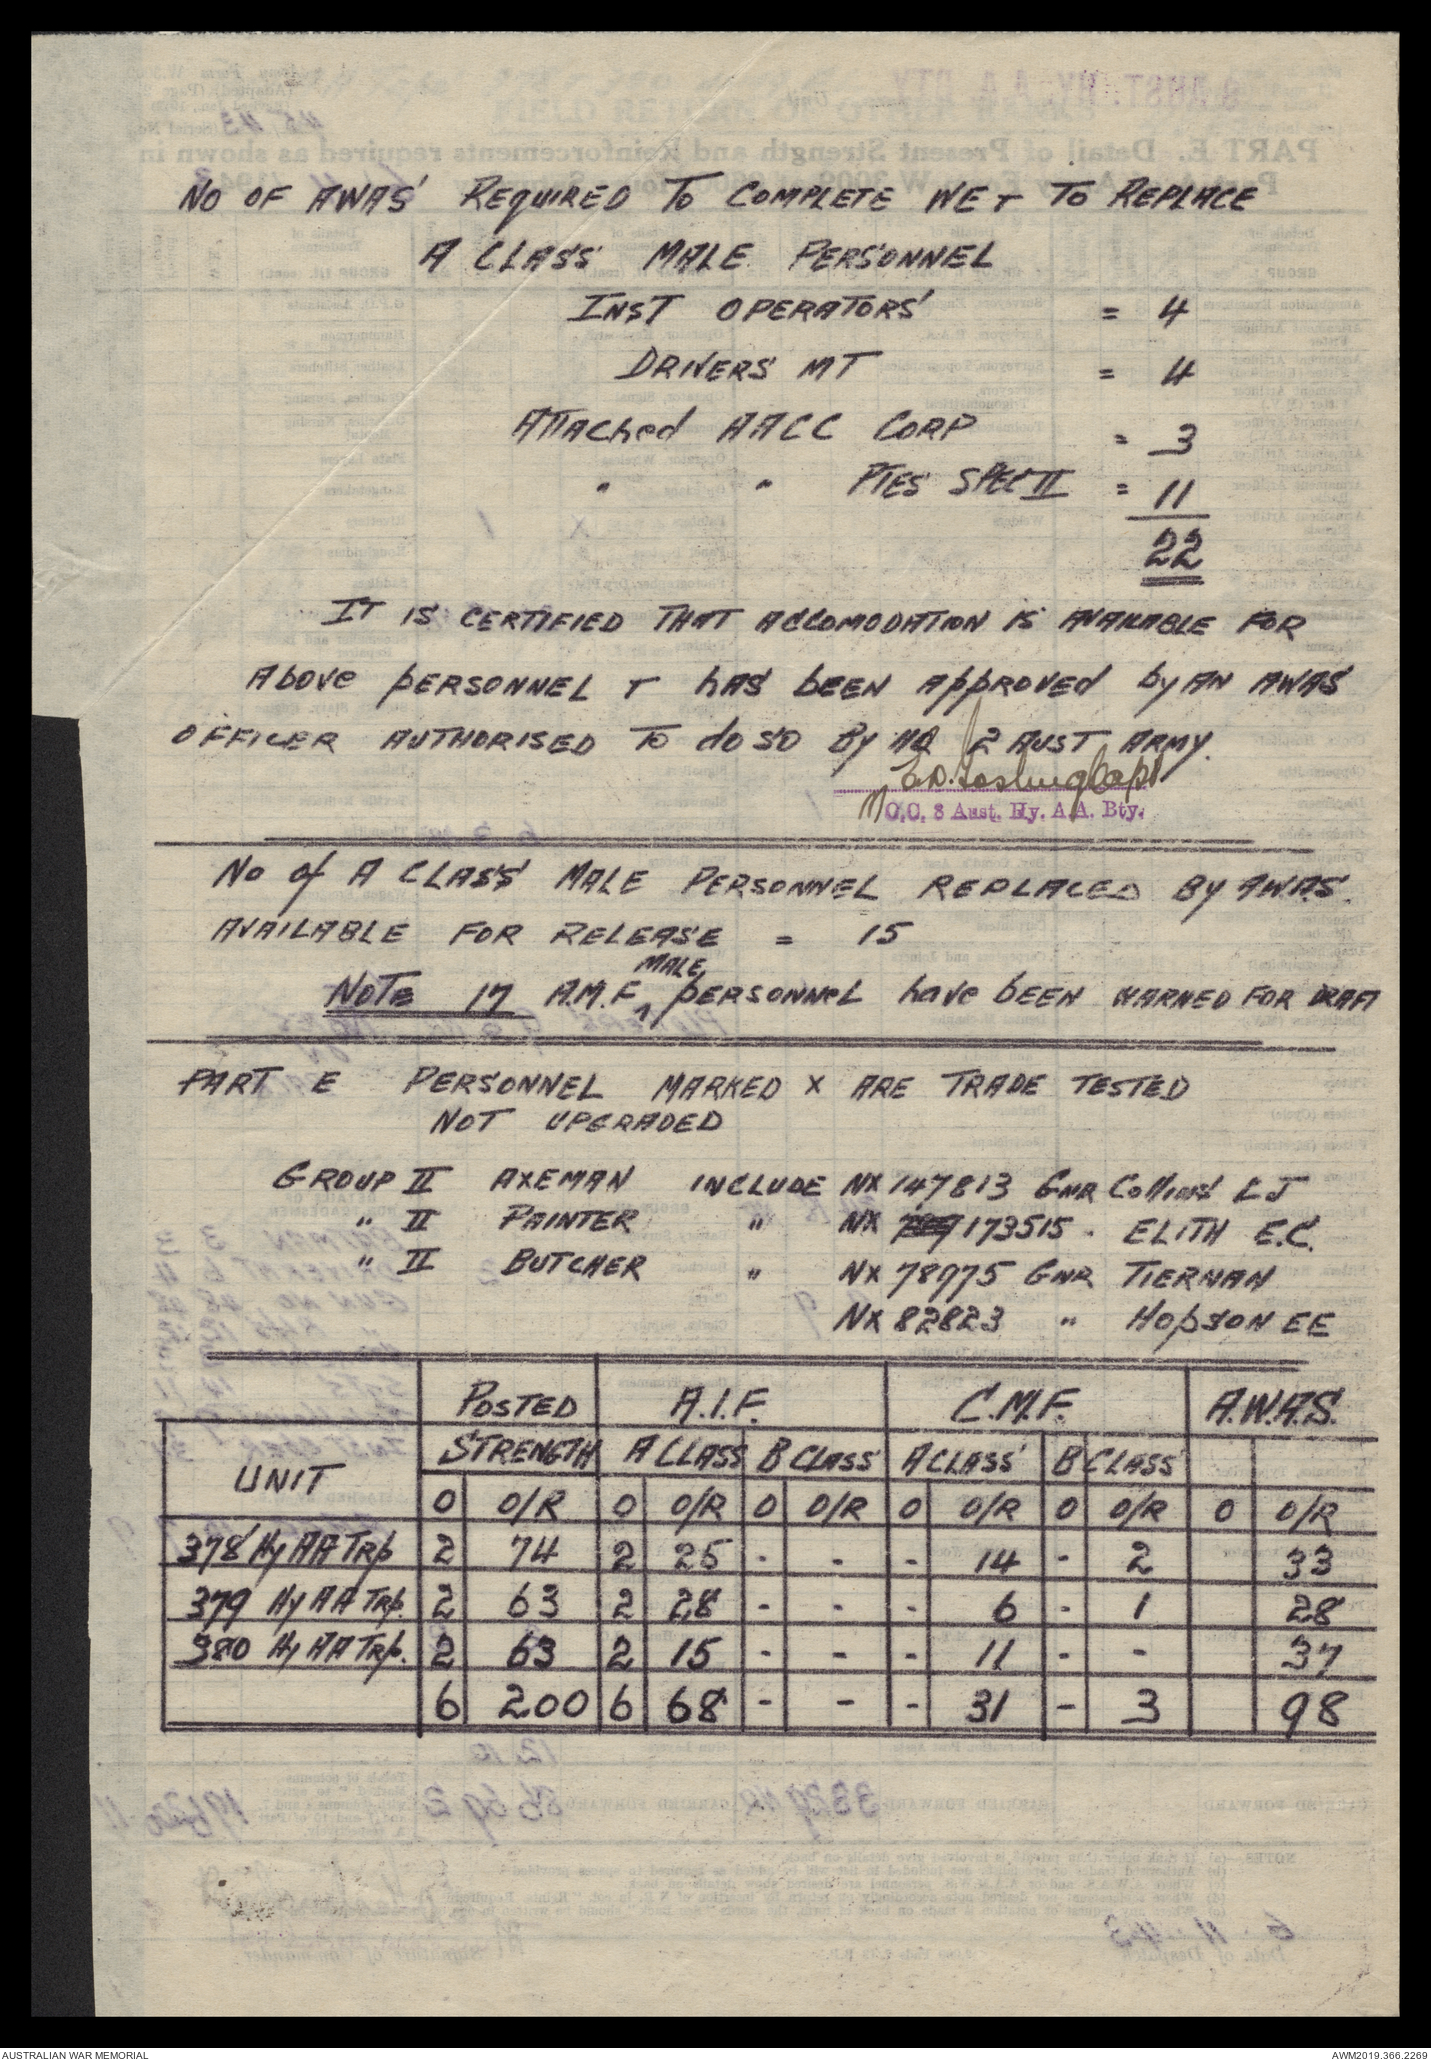 NO OF AWAS REQUIRED TO COMPLETE WE + TO REPLACE
A CLASS MALE PERSONNEL
INST OPERATORS = 4
DRIVERS MT = 4
Attached AACC CORP = 3
" " PTES SPEC II = 11
22
IT IS CERTIFIED THAT ACCOMODATION IS AVAILABLE FOR
Above PERSONNEL + HAS BEEN Approved by AN AWAS
OFFICER AUTHORISED TO do SO By HQ 2 AUST ARMY.
Capt
O.C. 8 Aust. Hy. A.A. Bty.
No of A CLASS MALE PERSONNEL REPLACED By AWAS.
AVAILABLE FOR RELEASE = 15
NOTE 17 A.M.F. MALE PERSONNEL have BEEN WARNED FOR DRAFT
PART E PERSONNEL MARKED X ARE TRADE TESTED
NOT UPGRADED
GROUP II AXEMAN INCLUDE NX 147813 GNR Collins L J
" II PAINTER " NX 173515 - ELITH E.C.
" II BUTCHER " NX 78975 GNR TIERNAN
NX 82823 " HOPSON EE
POSTED A.I.F. C.M.F. A.W.A.S.
UNIT STRENGTH A CLASS B CLASS A CLASS B CLASS
O O/R O O/R O O/R O O/R O O/R O O/R
378 Hy AA Trp 2 74 2 25 - - - 14 - 2 33
379 Hy AA Trp. 2 63 2 28 - - - 6 - 1 28
380 Hy AA Trp. 2 63 2 15 - - - 11 - - 37
6 200 6 68 - - - 31 - 3 98
AUSTRALIAN WAR MEMORIAL
AWM2019.366.2269